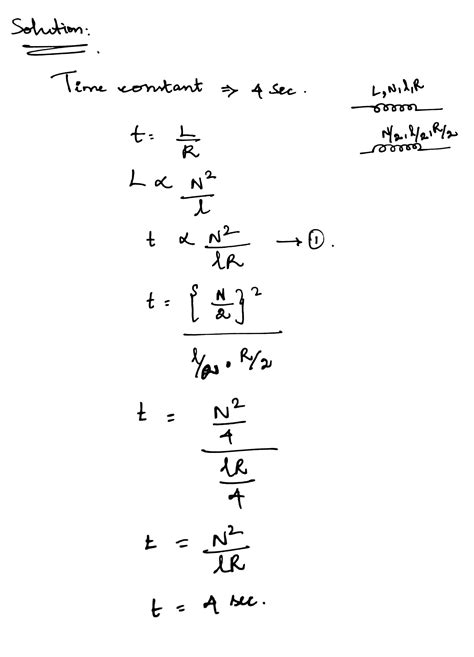 Solution:
Time constant ⇒ 4 sec.
L, N, l, R
N/2, l/2, R/2
t = L/R
L ∝ N²/l
t ∝ N²/lR → ①.
t = {N/2}² / l/2 · R/2
t = N²/4 / lR/4
t = N²/lR
t = 4 sec.